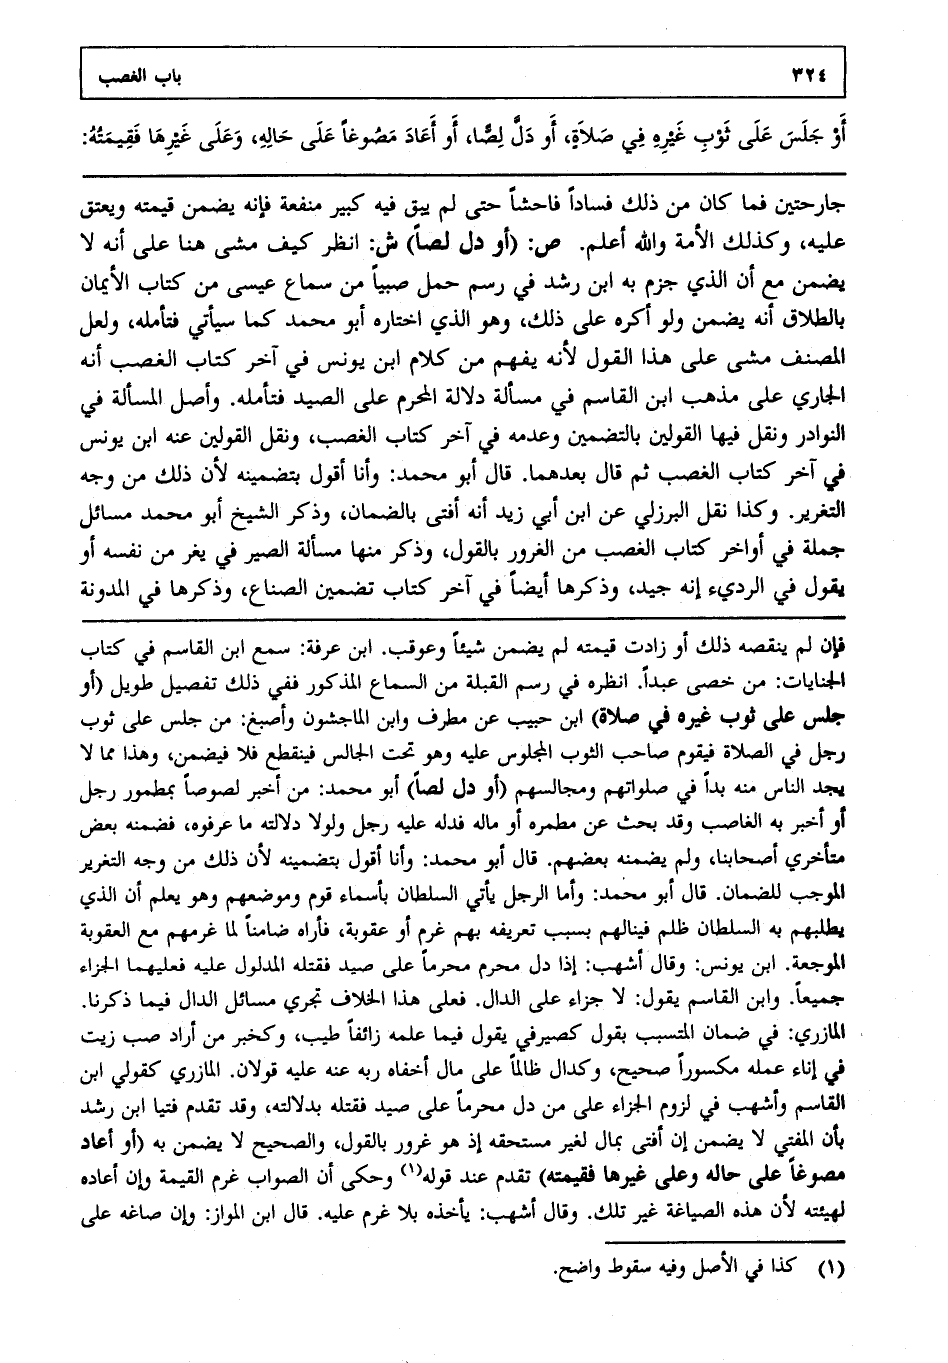 ٣٢٤ باب الغصب
أَوْ جَلَسَ عَلَى ثَوْبِ غَيْرِهِ فِي صَلاَةٍ، أَو دَلَّ لِصًّا، أَو أَعَادَ مَصُوغاً عَلَى حَالِهِ، وَعَلَى غَيْرِهَا فَقِيمَتُهُ:
جارحتين فما كان من ذلك فساداً فاحشاً حتى لم يبق فيه كبير منفعة فإنه يضمن قيمته ويعتق
عليه، وكذلك الأمة والله أعلم. ص: (أو دل لصاً) ش: انظر كيف مشى هنا على أنه لا
يضمن مع أن الذي جزم به ابن رشد في رسم حمل صبياً من سماع عيسى من كتاب الأيمان
بالطلاق أنه يضمن ولو أكره على ذلك، وهو الذي اختاره أبو محمد كما سيأتي فتأمله، ولعل
المصنف مشى على هذا القول لأنه يفهم من كلام ابن يونس في آخر كتاب الغصب أنه
الجاري على مذهب ابن القاسم في مسألة دلالة المحرم على الصيد فتأمله. وأصل المسألة في
النوادر ونقل فيها القولين بالتضمين وعدمه في آخر كتاب الغصب، ونقل القولين عنه ابن يونس
في آخر كتاب الغصب ثم قال بعدهما. قال أبو محمد: وأنا أقول بتضمينه لأن ذلك من وجه
التغرير. وكذا نقل البرزلي عن ابن أبي زيد أنه أفتى بالضمان، وذكر الشيخ أبو محمد مسائل
جملة في أواخر كتاب الغصب من الغرور بالقول، وذكر منها مسألة الصير في يغر من نفسه أو
يقول في الرديء إنه جيد، وذكرها أيضاً في آخر كتاب تضمين الصناع، وذكرها في المدونة
فإن لم ينقصه ذلك أو زادت قيمته لم يضمن شيئاً وعوقب. ابن عرفة: سمع ابن القاسم في كتاب
الجنايات: من خصى عبداً. انظره في رسم القبلة من السماع المذكور ففي ذلك تفصيل طويل (أو
جلس على ثوب غيره في صلاة) ابن حبيب عن مطرف وابن الماجشون وأصبغ: من جلس على ثوب
رجل في الصلاة فيقوم صاحب الثوب المجلوس عليه وهو تحت الجالس فينقطع فلا فيضمن، وهذا مما لا
يجد الناس منه بداً في صلواتهم ومجالسهم (أو دل لصاً) أبو محمد: من أخبر لصوصاً بمطمور رجل
أو أخبر به الغاصب وقد بحث عن مطمره أو ماله فدله عليه رجل ولولا دلالته ما عرفوه، فضمنه بعض
متأخري أصحابنا، ولم يضمنه بعضهم. قال أبو محمد: وأنا أقول بتضمينه لأن ذلك من وجه التغرير
الموجب للضمان. قال أبو محمد: وأما الرجل يأتي السلطان بأسماء قوم وموضعهم وهو يعلم أن الذي
يطلبهم به السلطان ظلم فينالهم بسبب تعريفه بهم غرم أو عقوبة، فأراه ضامناً لما غرمهم مع العقوبة
الموجعة. ابن يونس: وقال أشهب: إذا دل محرم محرماً على صيد فقتله المدلول عليه فعليهما الجزاء
جميعاً. وابن القاسم يقول: لا جزاء على الدال. فعلى هذا الخلاف تجري مسائل الدال فيما ذكرنا.
المازري: في ضمان المتسبب بقول كصيرفي يقول فيما علمه زائفاً طيب، وكخبر من أراد صب زيت
في إناء عمله مكسوراً صحيح، وكدال ظالماً على مال أخفاه ربه عنه عليه قولان. المازري كقولي ابن
القاسم وأشهب في لزوم الجزاء على من دل محرماً على صيد فقتله بدلالته، وقد تقدم فتيا ابن رشد
بأن المفتي لا يضمن إن أفتى بمال لغير مستحقه إذ هو غرور بالقول، والصحيح لا يضمن به (أو أعاد
مصوغاً على حاله وعلى غيرها فقيمته) تقدم عند قوله(١) وحكى أن الصواب غرم القيمة وإن أعاده
لهيئته لأن هذه الصياغة غير تلك. وقال أشهب: يأخذه بلا غرم عليه. قال ابن المواز: وإن صاغه على
(١) كذا في الأصل وفيه سقوط واضح.